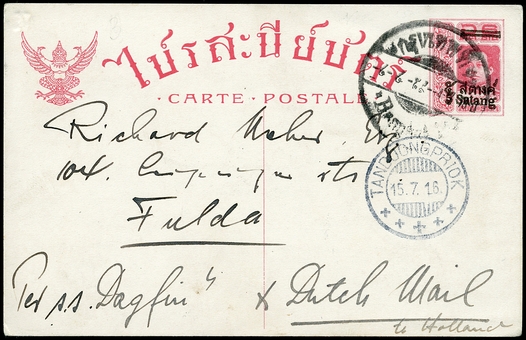 ไปรสะนียบัตร
· CARTE · POSTALE ·
๕ สตางค์
5 Satang
TANDJONGPRIOK
15.7.16
Richard
104.
Fulda
Per s.s. "Dagfin" x Dutch Mail
to Holland